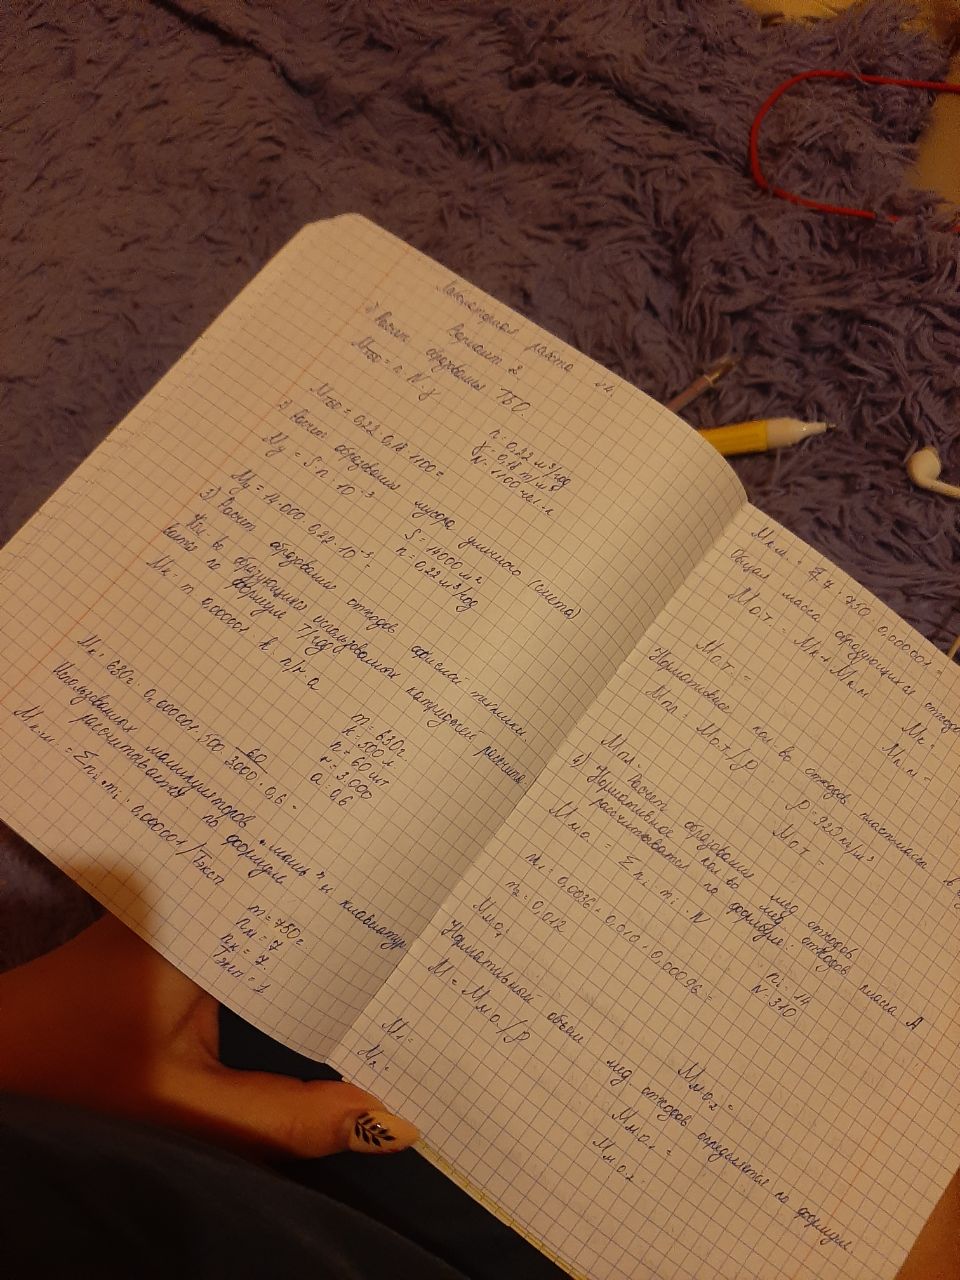 Лабораторная работа №4.
Вариант 2.
1) Расчет образования ТБО.
Мтбо = n · N · γ
n = 0,22 м³/год
γ = 0,18 т/м³
N = 1100 чел.
Мтбо = 0,22 · 0,18 · 1100 =
2) Расчет образования мусора уличного (смета)
Му = S · n · 10⁻³
S = 14000 м²
n = 0,22 м³/год
Му = 14000 · 0,22 · 10⁻³ =
3) Расчет образования отходов офисной техники.
Кол-во образующихся использованных картриджей рассчиты
вается по формуле т/год
Мк = m · 0,000001 · k · n/r · a
m = 630 г
k = 500 л.
n = 60 шт
r = 3.000
a = 0,6
Мк = 630 · 0,000001 · 500 · 60/3.000 · 0,6 =
Использованных манипуляторов "мышь" и клавиатур
рассчитывается по формуле
Мк.м. = Σ ni · mi · 0,000001 / Тэксп
m = 750 г
nм = 7
nк = 7.
Тэксп = 1
Мк.м. = 7.7 · 750 · 0,000001 =
Общая масса образующихся отходов
Мо.т. = Мк + Мк.м
Мк =
Мк.м =
Мо.т. =
Нормативное кол-во отходов пластмассы в
Мпл = Мо.т / ρ
ρ = 220 кг/м³
Мо.т =
Мпл =
4) Расчет образования мед отходов
Нормативное кол-во мед. отходов класса А
рассчитывают по формуле:
Мм.о = Σ ni · mi · N
ni = 14
N = 310
m1 = 0,0036 + 0,010 + 0,00096 =
m2 = 0,012
Мм.о1 =
Мм.о.2 =
Нормативный объем мед отходов определяется по формуле
М = Мм.о. / ρ
Мм.о.1 =
Мм.о.2
М1 =
М2 =